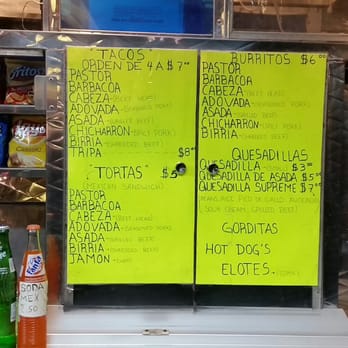 "TACOS"
ORDEN DE 4 A $7.00
PASTOR
BARBACOA
CABEZA (BEEF HEAD)
ADOVADA
ASADA
CHICHARRON
BIRRIA
TRIPA $8.00
"TORTAS" $5
(MEXICAN SANDWICH)
PASTOR
BARBACOA
CABEZA (BEEF HEAD)
ADOVADA
ASADA
BIRRIA
JAMON
BURRITOS $6.00
PASTOR
BARBACOA
CABEZA
ADOVADA
ASADA
CHICHARRON
BIRRIA
QUESADILLAS
QUESADILLA $3.00
QUESADILLA DE ASADA $5
QUESADILLA SUPREME $7
GORDITAS
HOT DOG'S
ELOTES.
Fritos
Fanta
SODA
MEX
2.50